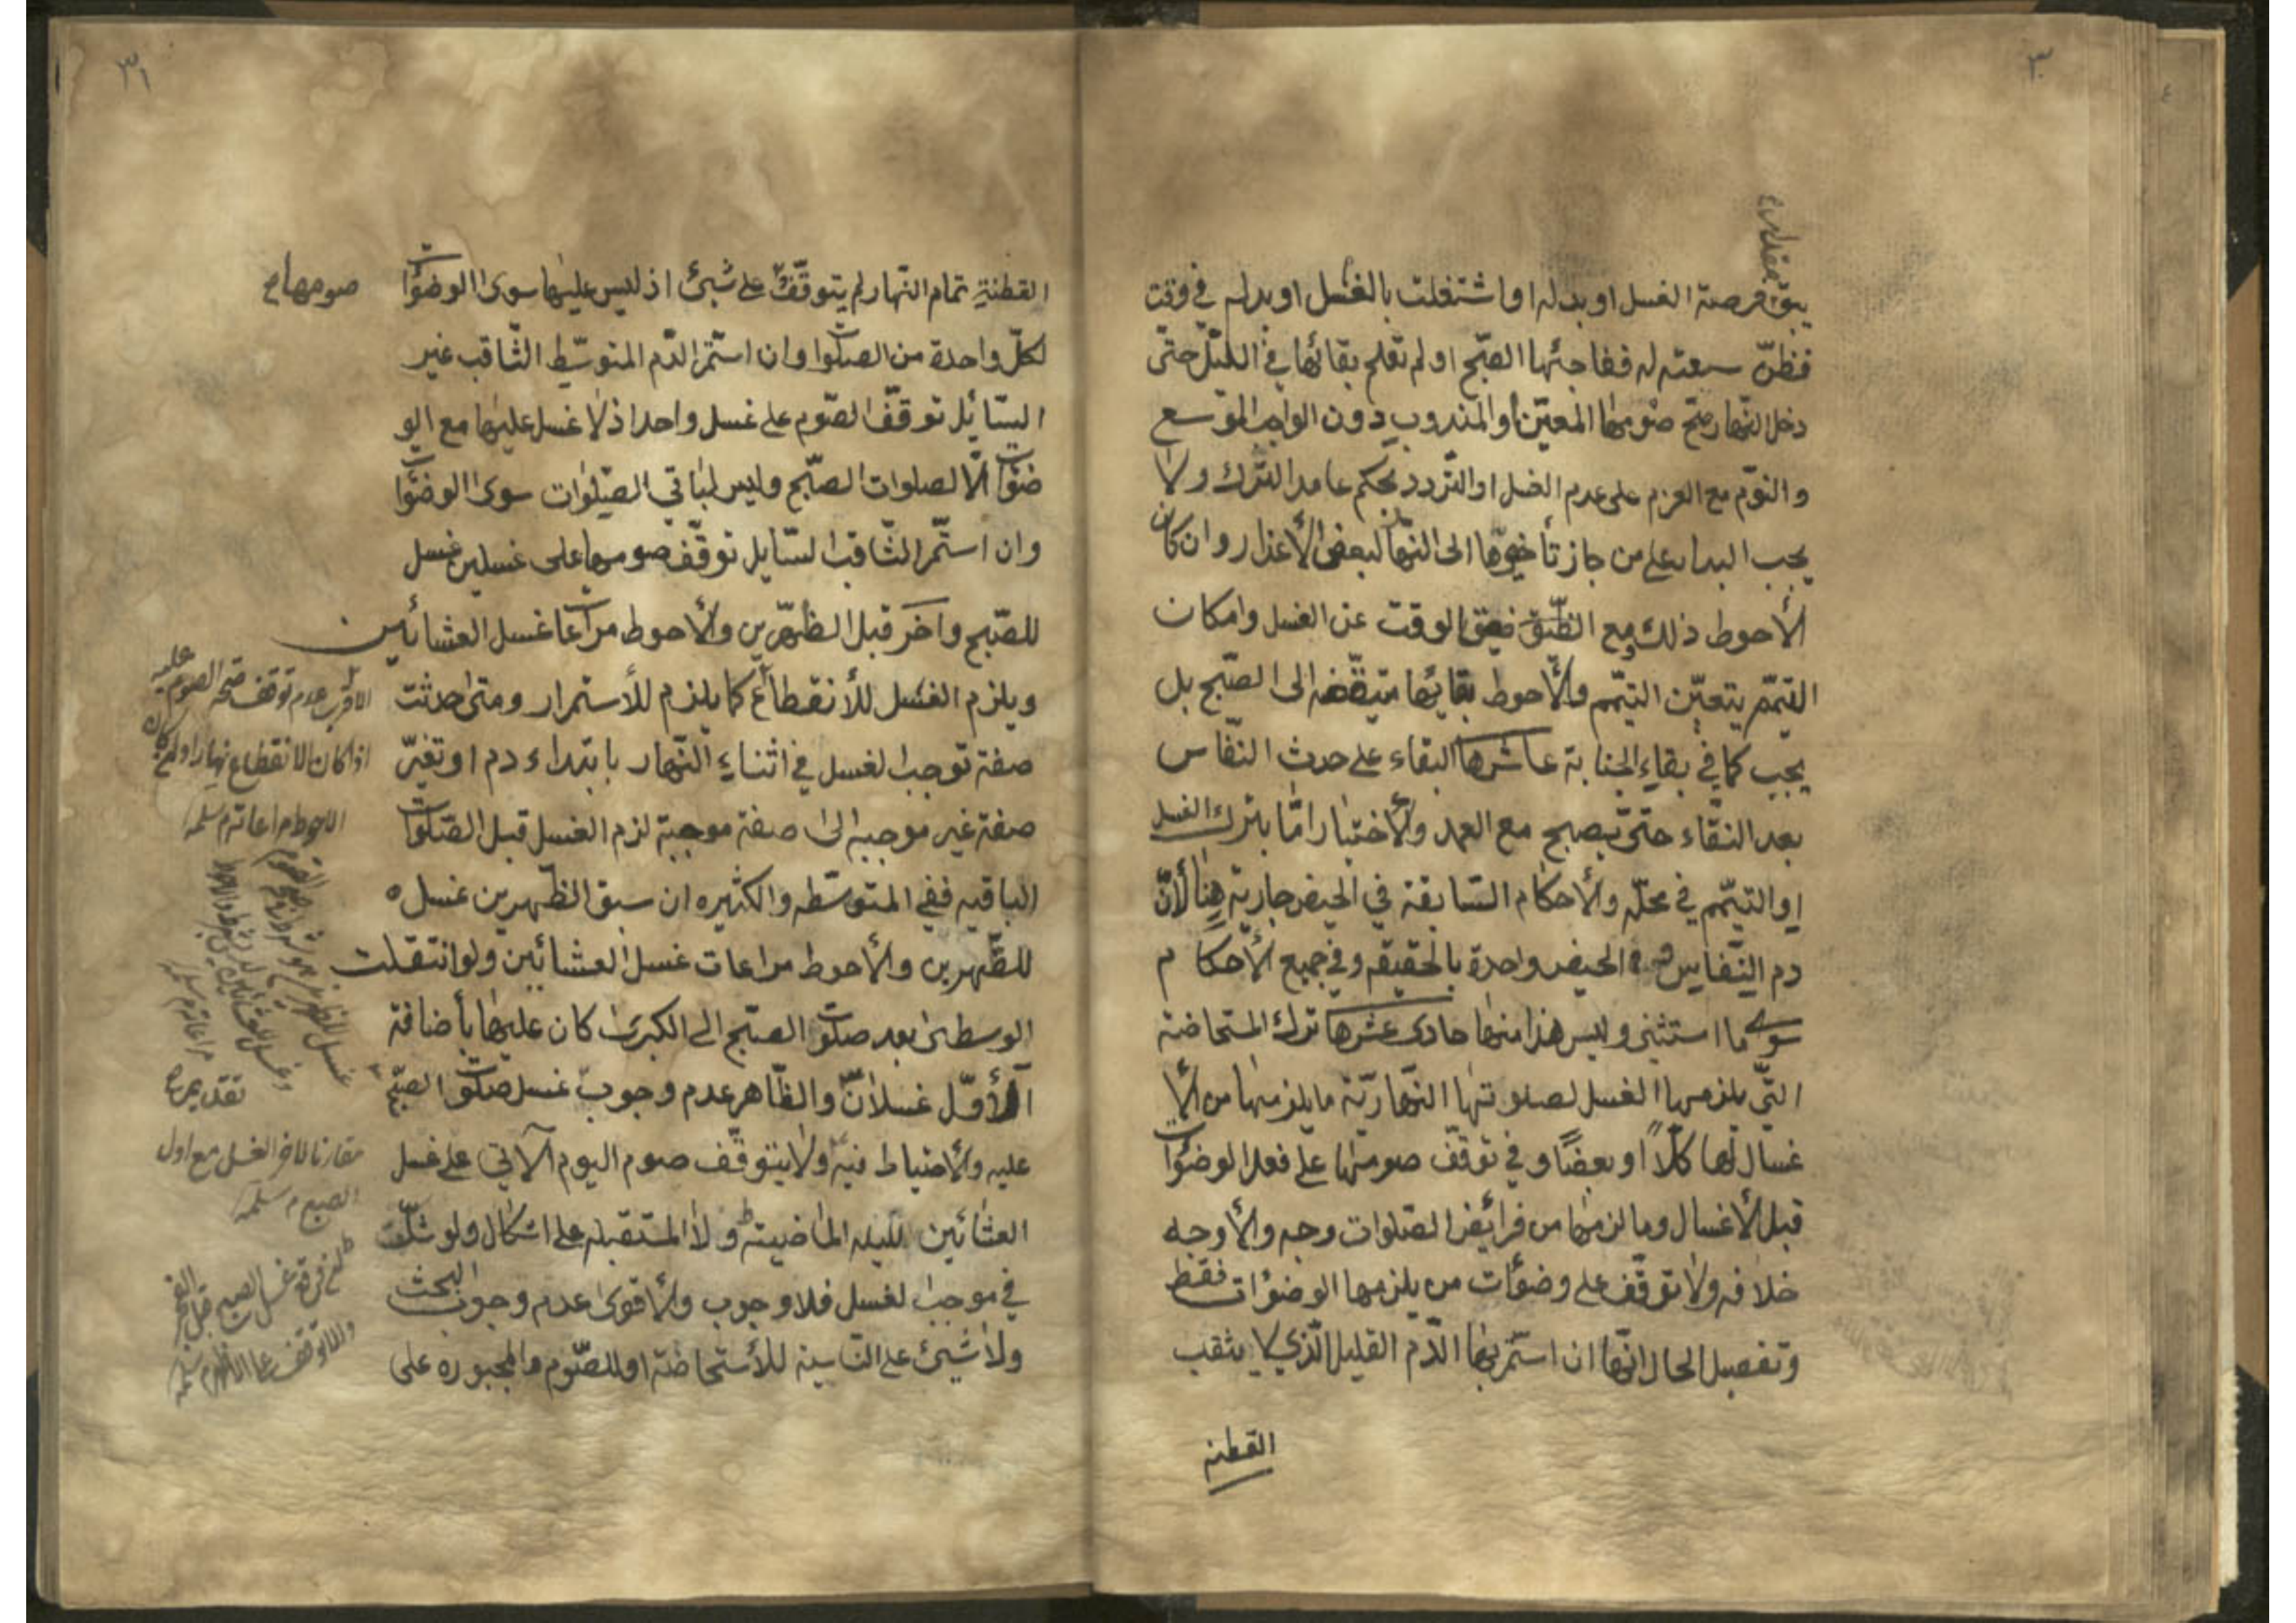 ٣٠
يبق فرصة الغسل او بدله او اشتغلت بالغسل او بدله في وقت
فظنّ سعته له ففاجئها الصّبح او لم تعلم بقائها في اللّيل حتّى
دخل النّهار صحّ صومها المعيّن او المندوب دون الواجب الموسع
والنوّم مع العزم على عدم الغسل او التّردد بحكم عامد التّرك ولا
يجب البدار على من جاز تأخيرها الى النّهار لبعض الأعذار وان كان
الأحوط ذلك ومع الضّيق الوقت عن الغسل وامكان
التيمّم يتعيّن التيمّم والأحوط بقائها متيقّظه الى الصّبح بل
يجب كما في بقاء الجنابة عاشرها البقاء على حدث النّفاس
بعد النّقاء حتّى يصبح مع العمد والأختيار امّا بترك الغسل
او التيمّم في محلّه والأحكام السّابقة في الحيض جارية هنا لأنّ
دم النّفاس دم الحيض واحدة بالحقيقه وفي جميع الأحكام
سوى ما استثنى وليس هذا منها حادى عشرها ترك المستحاضة
التّي يلزمها الغسل لصلوتها النّهاريّة ما يلزمها من الأ
غسال لها كلّاً او بعضًا وفي توقّف صومها على فعل الوضوٰات
قبل الأغسال وما لزمها من فرائض الصّلوات وجه والأوجه
خلافه ولا توقّف على وضوٰات من يلزمها الوضوٰات فقط
وتفصيل الحال انّها ان استمّر بها الدّم القليل الّذي لا يثقب
القطنه
٣١
القطنةِ تمام النّهار لم يتوقّف على شيئ اذ ليس عليها سوى الوضوٰات
صومها م
لكلّ واحدة من الصلوات وان استمّر الدّم المتوسّط الثّاقب غير
السّائل توقّف الصّوم على غسل واحد اذ لا غسل عليها مع الو
ضوٰات الّا لصلوات الصّبح وليس لباقي الصّلوات سوى الوضوٰات
وان استمّر الثّاقب السّايل توقّف صومها على غسلين غسل
للصّبح واخر قبل الظّهرين والأحوط مراعات غسل العشائين
ويلزم الغسل للأنقطاع كما يلزم للأستمرار ومتى حدثت
صفة توجب الغسل في اثناء النّهار بابتداء دم او تغيّر
صفة غير موجبه الى صفة موجبة لزم الغسل قبل الصّلوات
الباقيه ففي المتوسّطه والكثيره ان سبق الظّهرين غسل
للظّهرين والأحوط مراعات غسل العشائين ولو انتقلت
الوسطى بعد صلوة الصّبح الى الكبرى كان عليها بأضافة
الأوّل غسلان والظّاهر عدم وجوب غسل صلوة الصّبح
عليه والأحتياط فيه ولا يتوقّف صوم اليوم الآتي على غسل
العشائين لليله الماضيته ولا المستقبله على اشكال ولو شكّت
في موجب الغسل فلا وجوب والأقوى عدم وجوب البحث
ولا شيئ على النّاسية للأستحاضة او للصّوم والمجبوره على
الاقرب عدم توقف صحة الصوم عليه
اذا كان الانقطاع نهارا وان كان
الاحوط مراعاته م سلمه
مقارنا لاخر الغسل مع اول
الصبح م سلمه